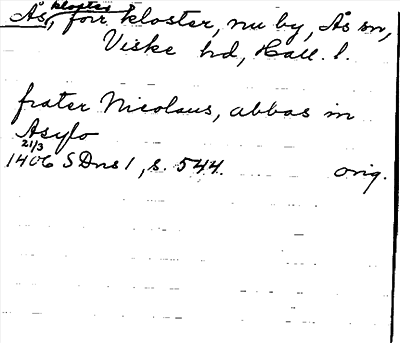 Ås, kloster, förr kloster, nu by, Ås sn,
Viske hd, Hall. l.
frater Nicolaus, abbas in
Asylo
1406 21/3 SDns 1, s. 544. orig.